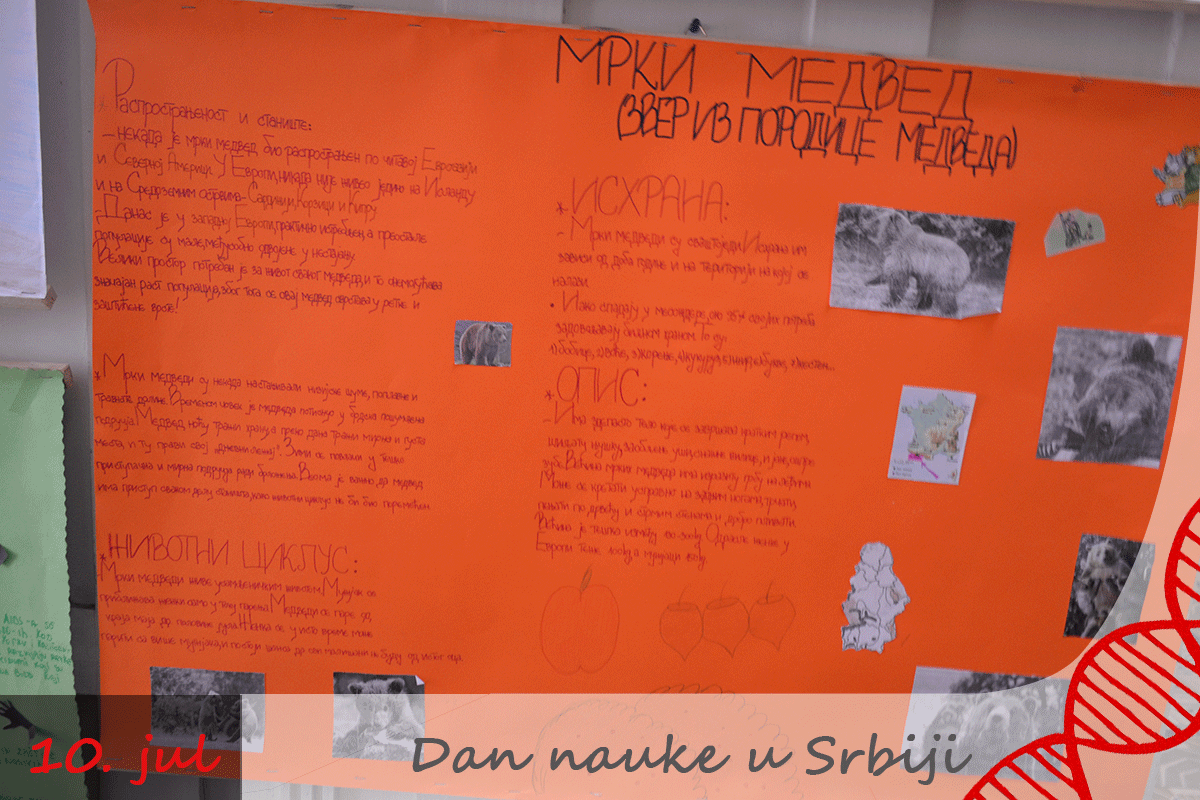 МРКИ МЕДВЕД
(ЗВЕР ИЗ ПОРОДИЦЕ МЕДВЕДА)
* Распрострањеност и станиште:
– некада је мрки медвед био распрострањен по читавој Евроазији
и Северној Америци. У Европи, никада није живео једино на Исланду
и на Средоземним острвима – Сардинији, Корзици и Кипру.
– Данас је у западној Европи, практично истребљен, а преостале
популације су мале, међусобно одвојене у нестајању.
Велики простор потребан је за живот сваког медведа, и то онемогућава
значајан раст популација, због тога се овај медвед сврстава у ретке и
заштићене врсте!
* Мрки медведи су некада настањивали низијске шуме, поплавне и
травнате долине. Временом човек је медведа потиснуо у брдска пошумљена
подручја. Медвед ноћу тражи храну, а преко дана тражи мирна и густа
места, и ту прави свој „дневни лежај". Зими се повлачи у тешко
приступачна и мирна подручја ради брложења. Веома је важно, да медвед
има приступ оваквом делу станишта, како животни циклус не би био поремећен.
ЖИВОТНИ ЦИКЛУС:
* Мрки медведи живе усамљеничким животом. Мужјак се
приближава женки само у току парења. Медведи се паре од
краја маја до половине јула. Женка се у исто време може
парити са више мужјака, и постоји шанса да сви младунци не буду од истог оца.
* ИСХРАНА:
– Мрки медведи су сваштоједи. Исхрана им
зависи од доба године и на територији на којој се
налази.
• Иако спадају у месождере, око 95% својих потреба
задовољавају биљном храном. То су:
1) бобице, 2) воће, 3) корење,
* ОПИС:
– Има здепасто тело које се завршава кратким репом,
шиљату њушку, заобљене уши, снажне вилице, и јаке, оштре
зубе. Већина мрких медведа има изражену грбу на леђима.
Може се кретати усправно на задњим ногама, трчати,
пењати по дрвећу и стрмим стенама и добро пливати.
Већина је тешка између
Европи теже 100кг а мужјаци
10. jul
Dan nauke u Srbiji